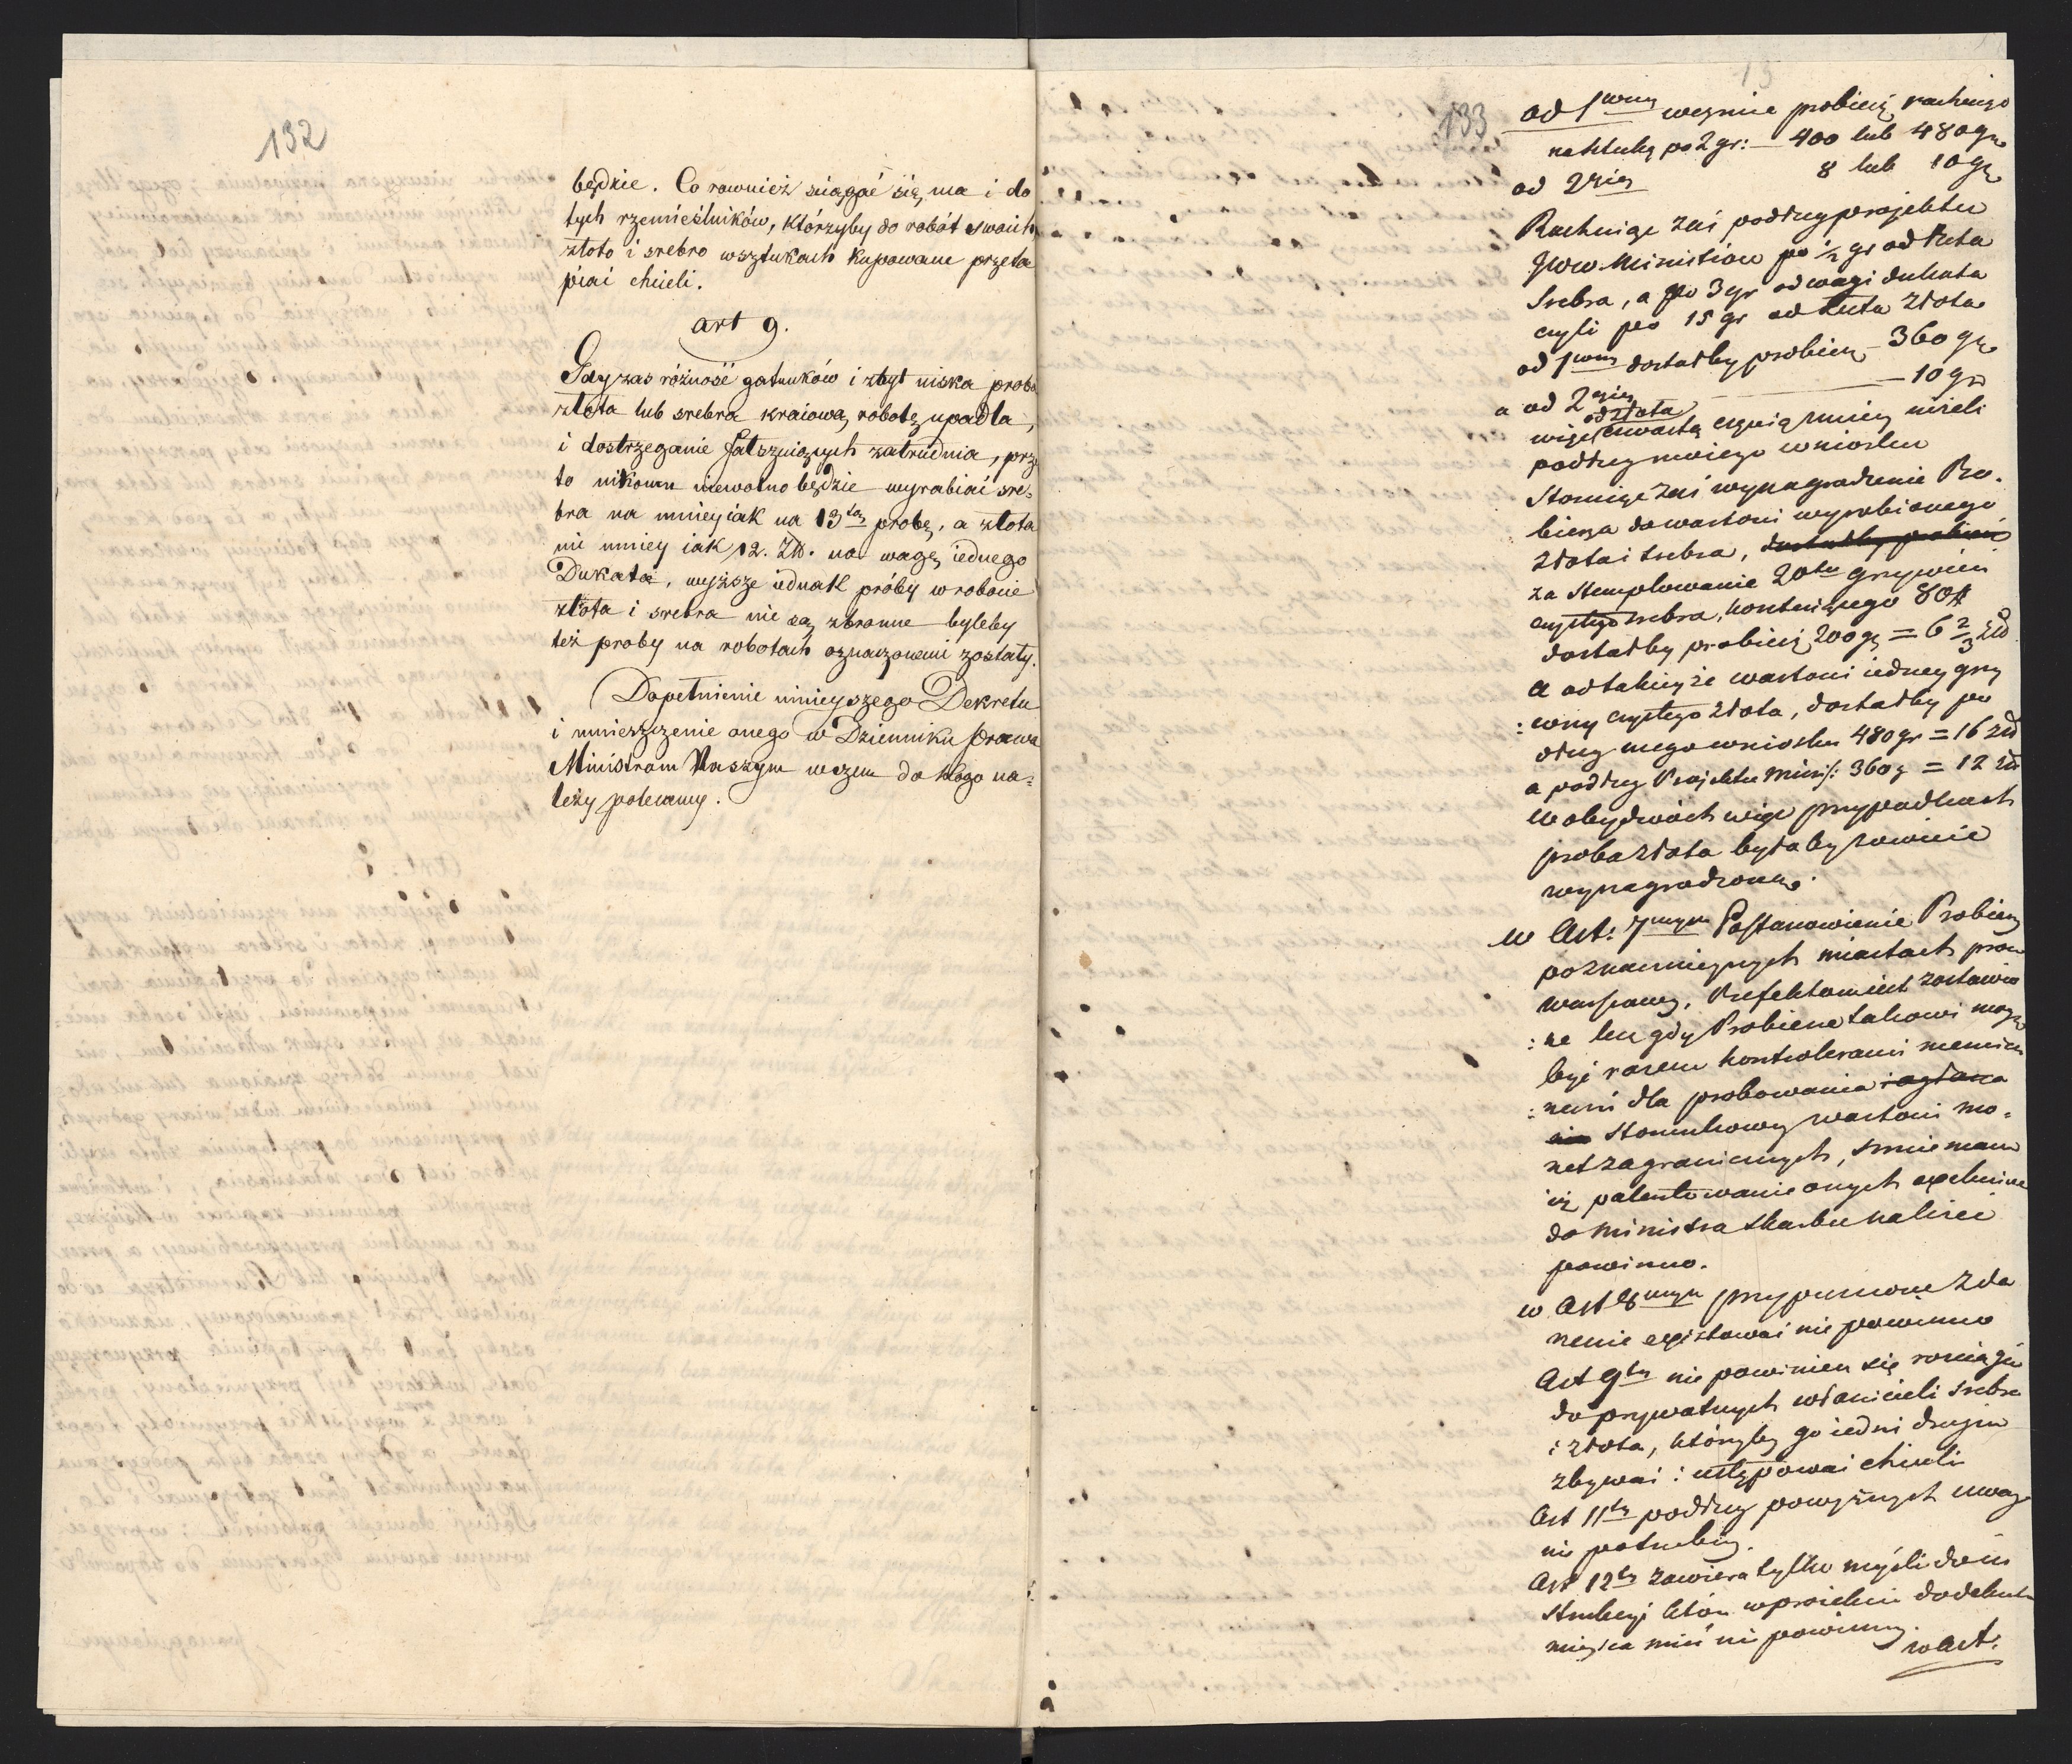 132
będzie. Co rownież sciągać się ma i do
tych rzemieślników, którzyby do robót swoich
złoto i srebro wsztukach kupowane przeta
piać chcieli.
art 9.
Gdy zas różność gatunków i zbyt niska proba
złota lub srebra kraiową robotę upadla,
i dostrzeganie fałszuiących zatrudnia, prze
to nikomu niewolno będzie wyrabiać sre=
bra na mniey iak na 13tą probę, a złota
nie mniey iak 12. Zł. na wagę iednego
Dukata, wyższe iednak próby w robocie
złota i srebra nie są zbronne byleby
też proby na robotach oznaczonemi zostały.
Dopełnienie ninieyszego Dekretu
i umieszczenie onego w Dzienniku praw
Ministrom Naszym wczem do kogo na=
leży polecamy.
133
od 1wszey weźmie probierz rachuiąc
na sztukę po 2 gr: — 400 lub 480 gr
od 2giey 8 lub 10 gr
Rachuiąc zaś podług projektu
JWW Ministrów po ½ gr od łuta
Srebra, a po 3 gr od wagi dukata
czyli po 15 gr od łuta złota
od 1wszey dostałby probierz — 360 gr
a od 2giey — 10 gr
od złota
więc czwartą częścią mniey niżeli
podług moiego wniosku
Stosuiąc zaś wynagrodzenie Pro=
bierza do wartości wyrobionego
złota i srebra, dostałby probierz
za stemplowanie 20tu grzywien
czystego srebra, kosztuiącego 80#
dostałby probierz 200 gr = 6 2/3 Zł
a od takieyże wartości iedney grzy
:wny czystego złota, dostałby po
dług mego wniosku 480 gr = 16 zł
a podług Projektu Minis: 360 g = 12 zł
w obydwóch więc przypadkach
proba złota byłaby sowicie
wynagrodzoną.
w Art: 7mym Postanowienie Probierzy
po znacznieyszych miastach prócz
Warszawy, Prefektom iest zostawio
:ne lecz gdy Probierze takowi mogą
być razem kontrolerami menni
:nemi dla probowania i ogłosze
nia stosunkowey wartości mo=
net zagranicznych, mniemam
iż patentowanie onych
do Ministra skarbu należeć
powinno.
w Art 8mym przypuszczone zda
rzenie existować nie powinno
Art 9ty nie powinien się rosciągać
do prywatnych właścicieli srebra
i złota, którzyby go iedni drugim
zbywać i ustępować chcieli
Art 11ty podług powyższych uwag
nie potrzebny.
Art 12ty zawiera tylko myśli do in
strukcyi które w proiekcie do dekretu
mieysca mieć nie powinny.
w Art: